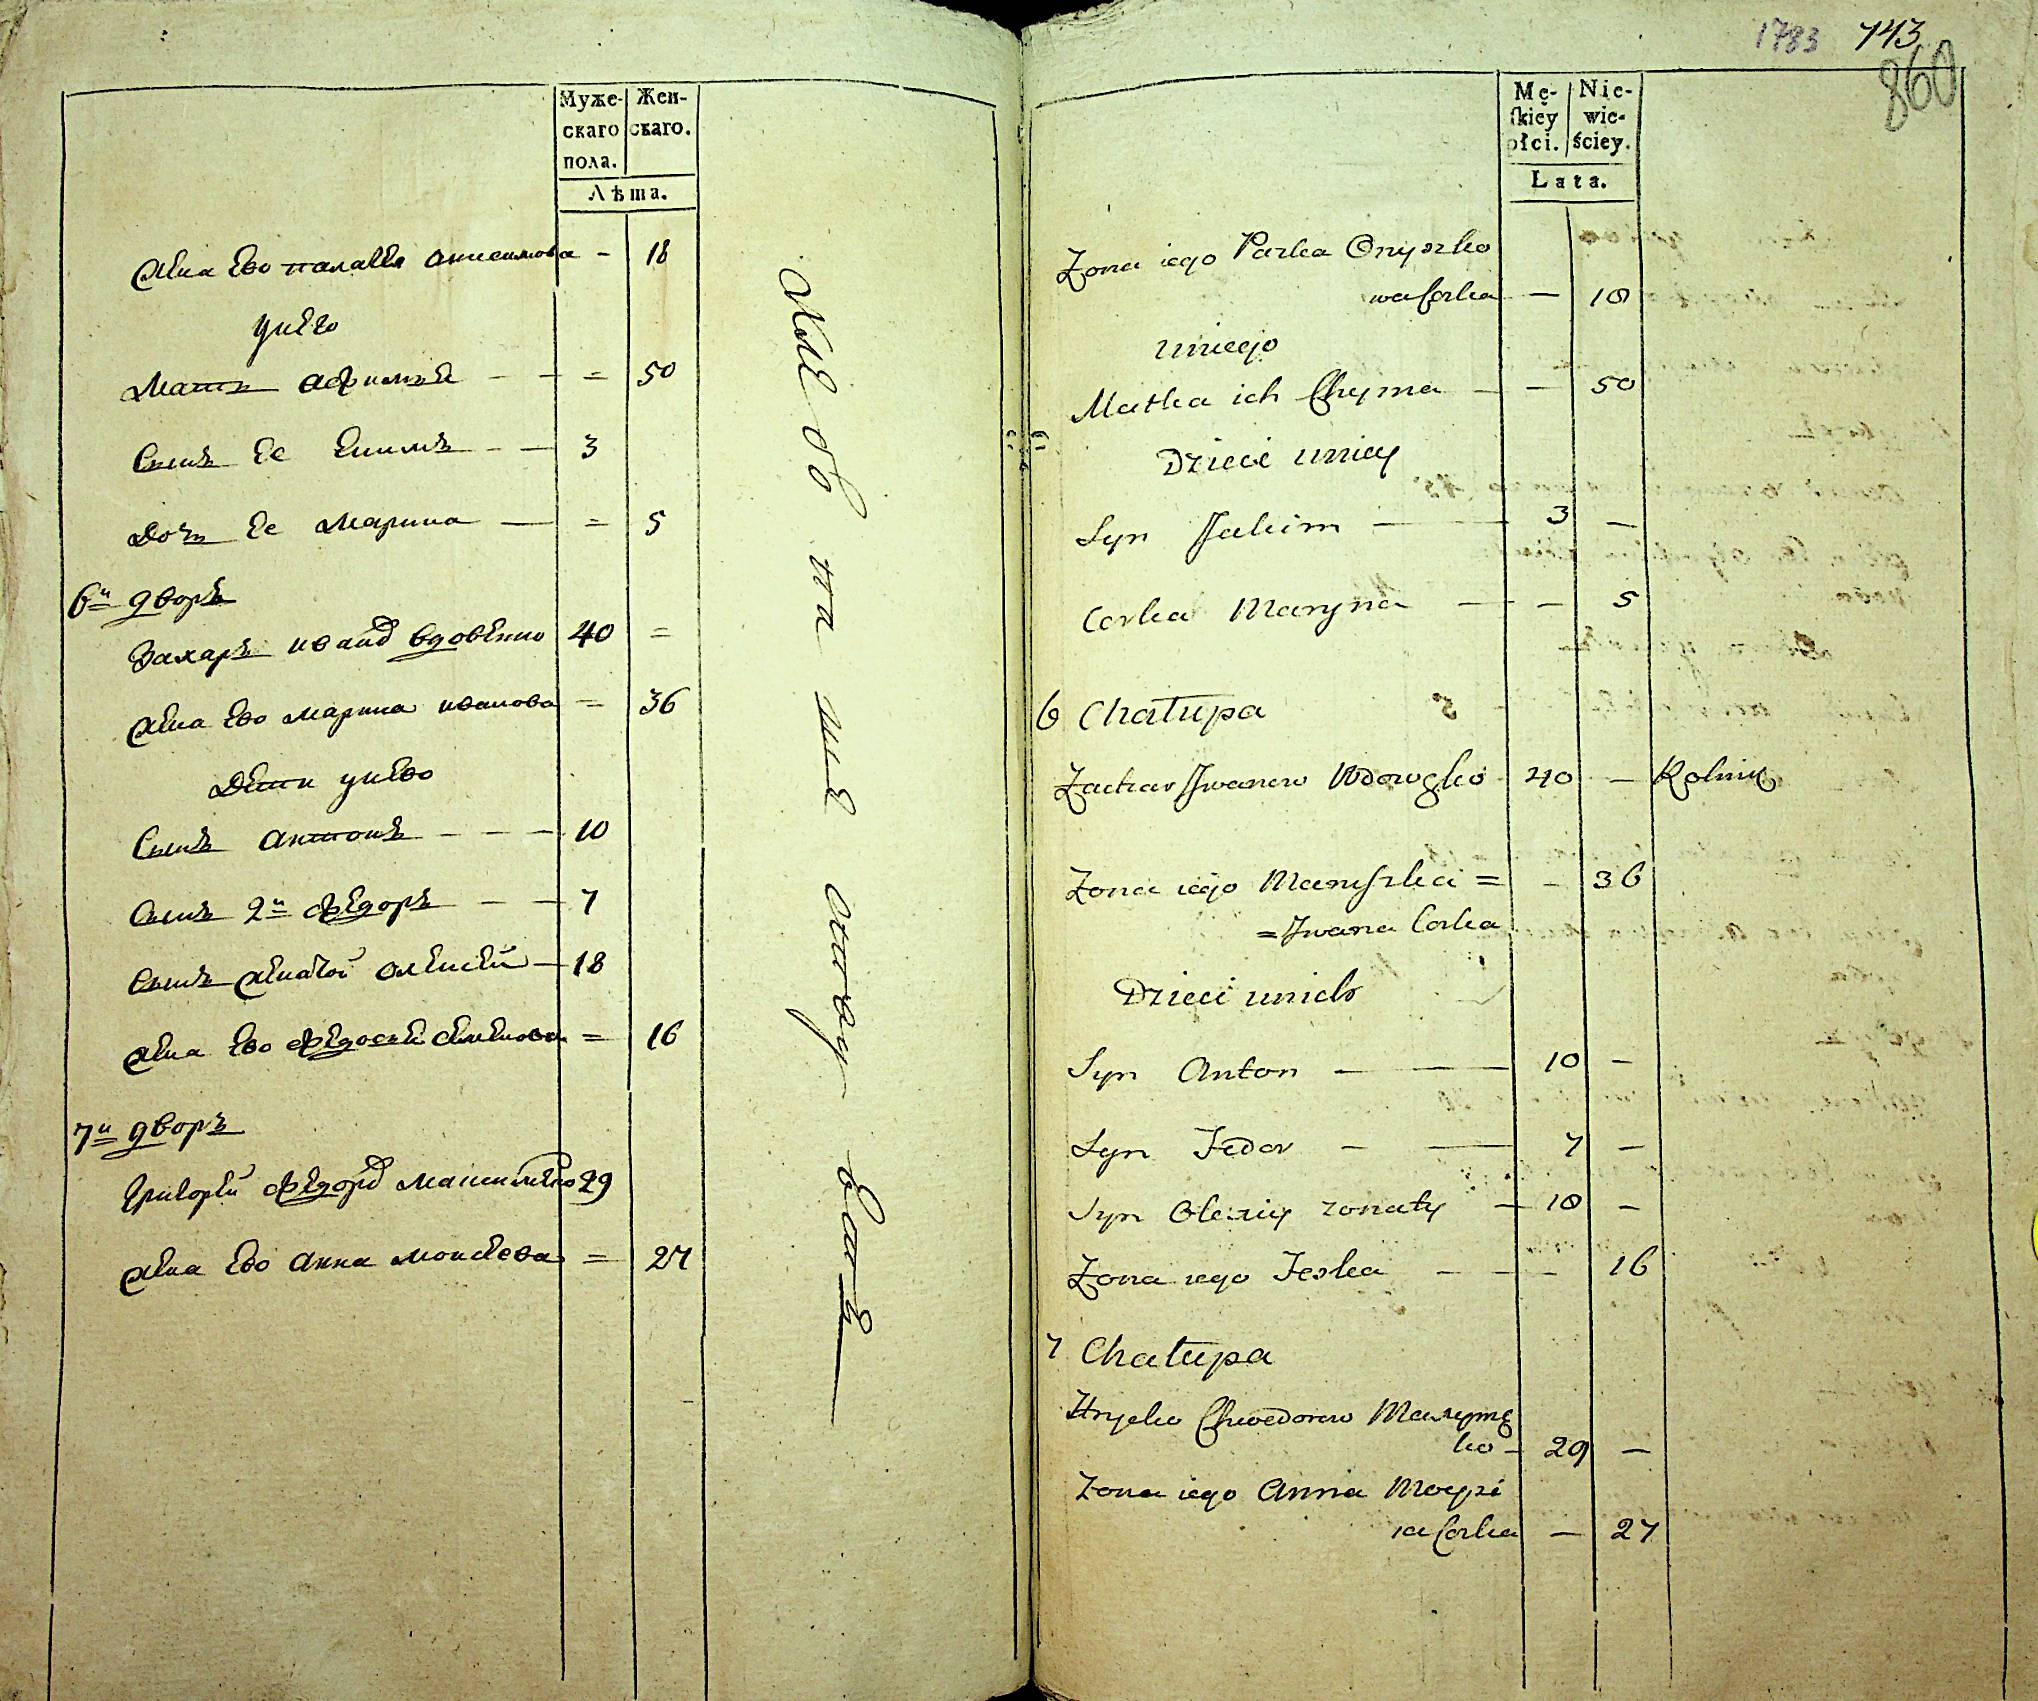 Муже-
скаго
пола.
Жен-
скаго.
Лѣта.
Жена Ево палагея анисимова - 18
унево
Мать афимья - - = 50
Сынъ Ее Екимъ - - 3
Дочь Ее Марина - = 5
6й дворъ
Захаръ иванов вдовенко 40 =
Жена Ево марина иванова = 36
Дети унево
Сынъ антонъ - - - 10
Сынъ 2й Федоръ - - 7
Сынъ женатой олексей - 18
Жена Ево Федосья семенова = 16
7й дворъ
Григорей Федоров максименко 29
Жена Ево Анна моисеева = 27
1783 743
860
Mę-
skiey
płci.
Nie-
wie-
ściey.
Lata.
Zona iego Parka Onyszko
wa Corka - 18
Uniego
Matka ich Chyma - - 50
Dzieci uniey
Syn Jakim - 3 -
Corka Maryna - - 5
6 Chałupa
Zachar Iwanow Wdowęko 40 - Rolnik
Zona iego Maruszka = - 36
= Iwana Corka
Dzieci unich
Syn Anton - 10 -
Syn Fedor - 7 -
Syn Olexiy zonaty - 18 -
Zona iego Feska - - - 16
7 Chałupa
Hryćko Chwedorow Maxymę
ko - 29 -
Zona iego Anna Moyzi
ia Corka - 27